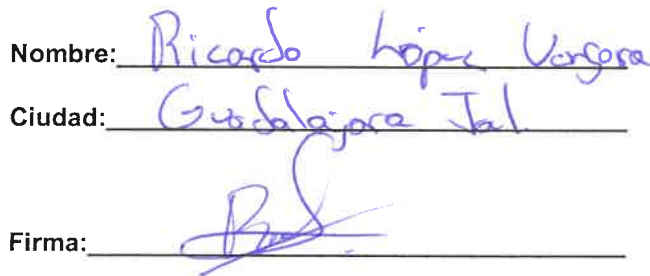 Nombre: Ricardo López Vergara
Ciudad: Guadalajara Jal.
Firma: